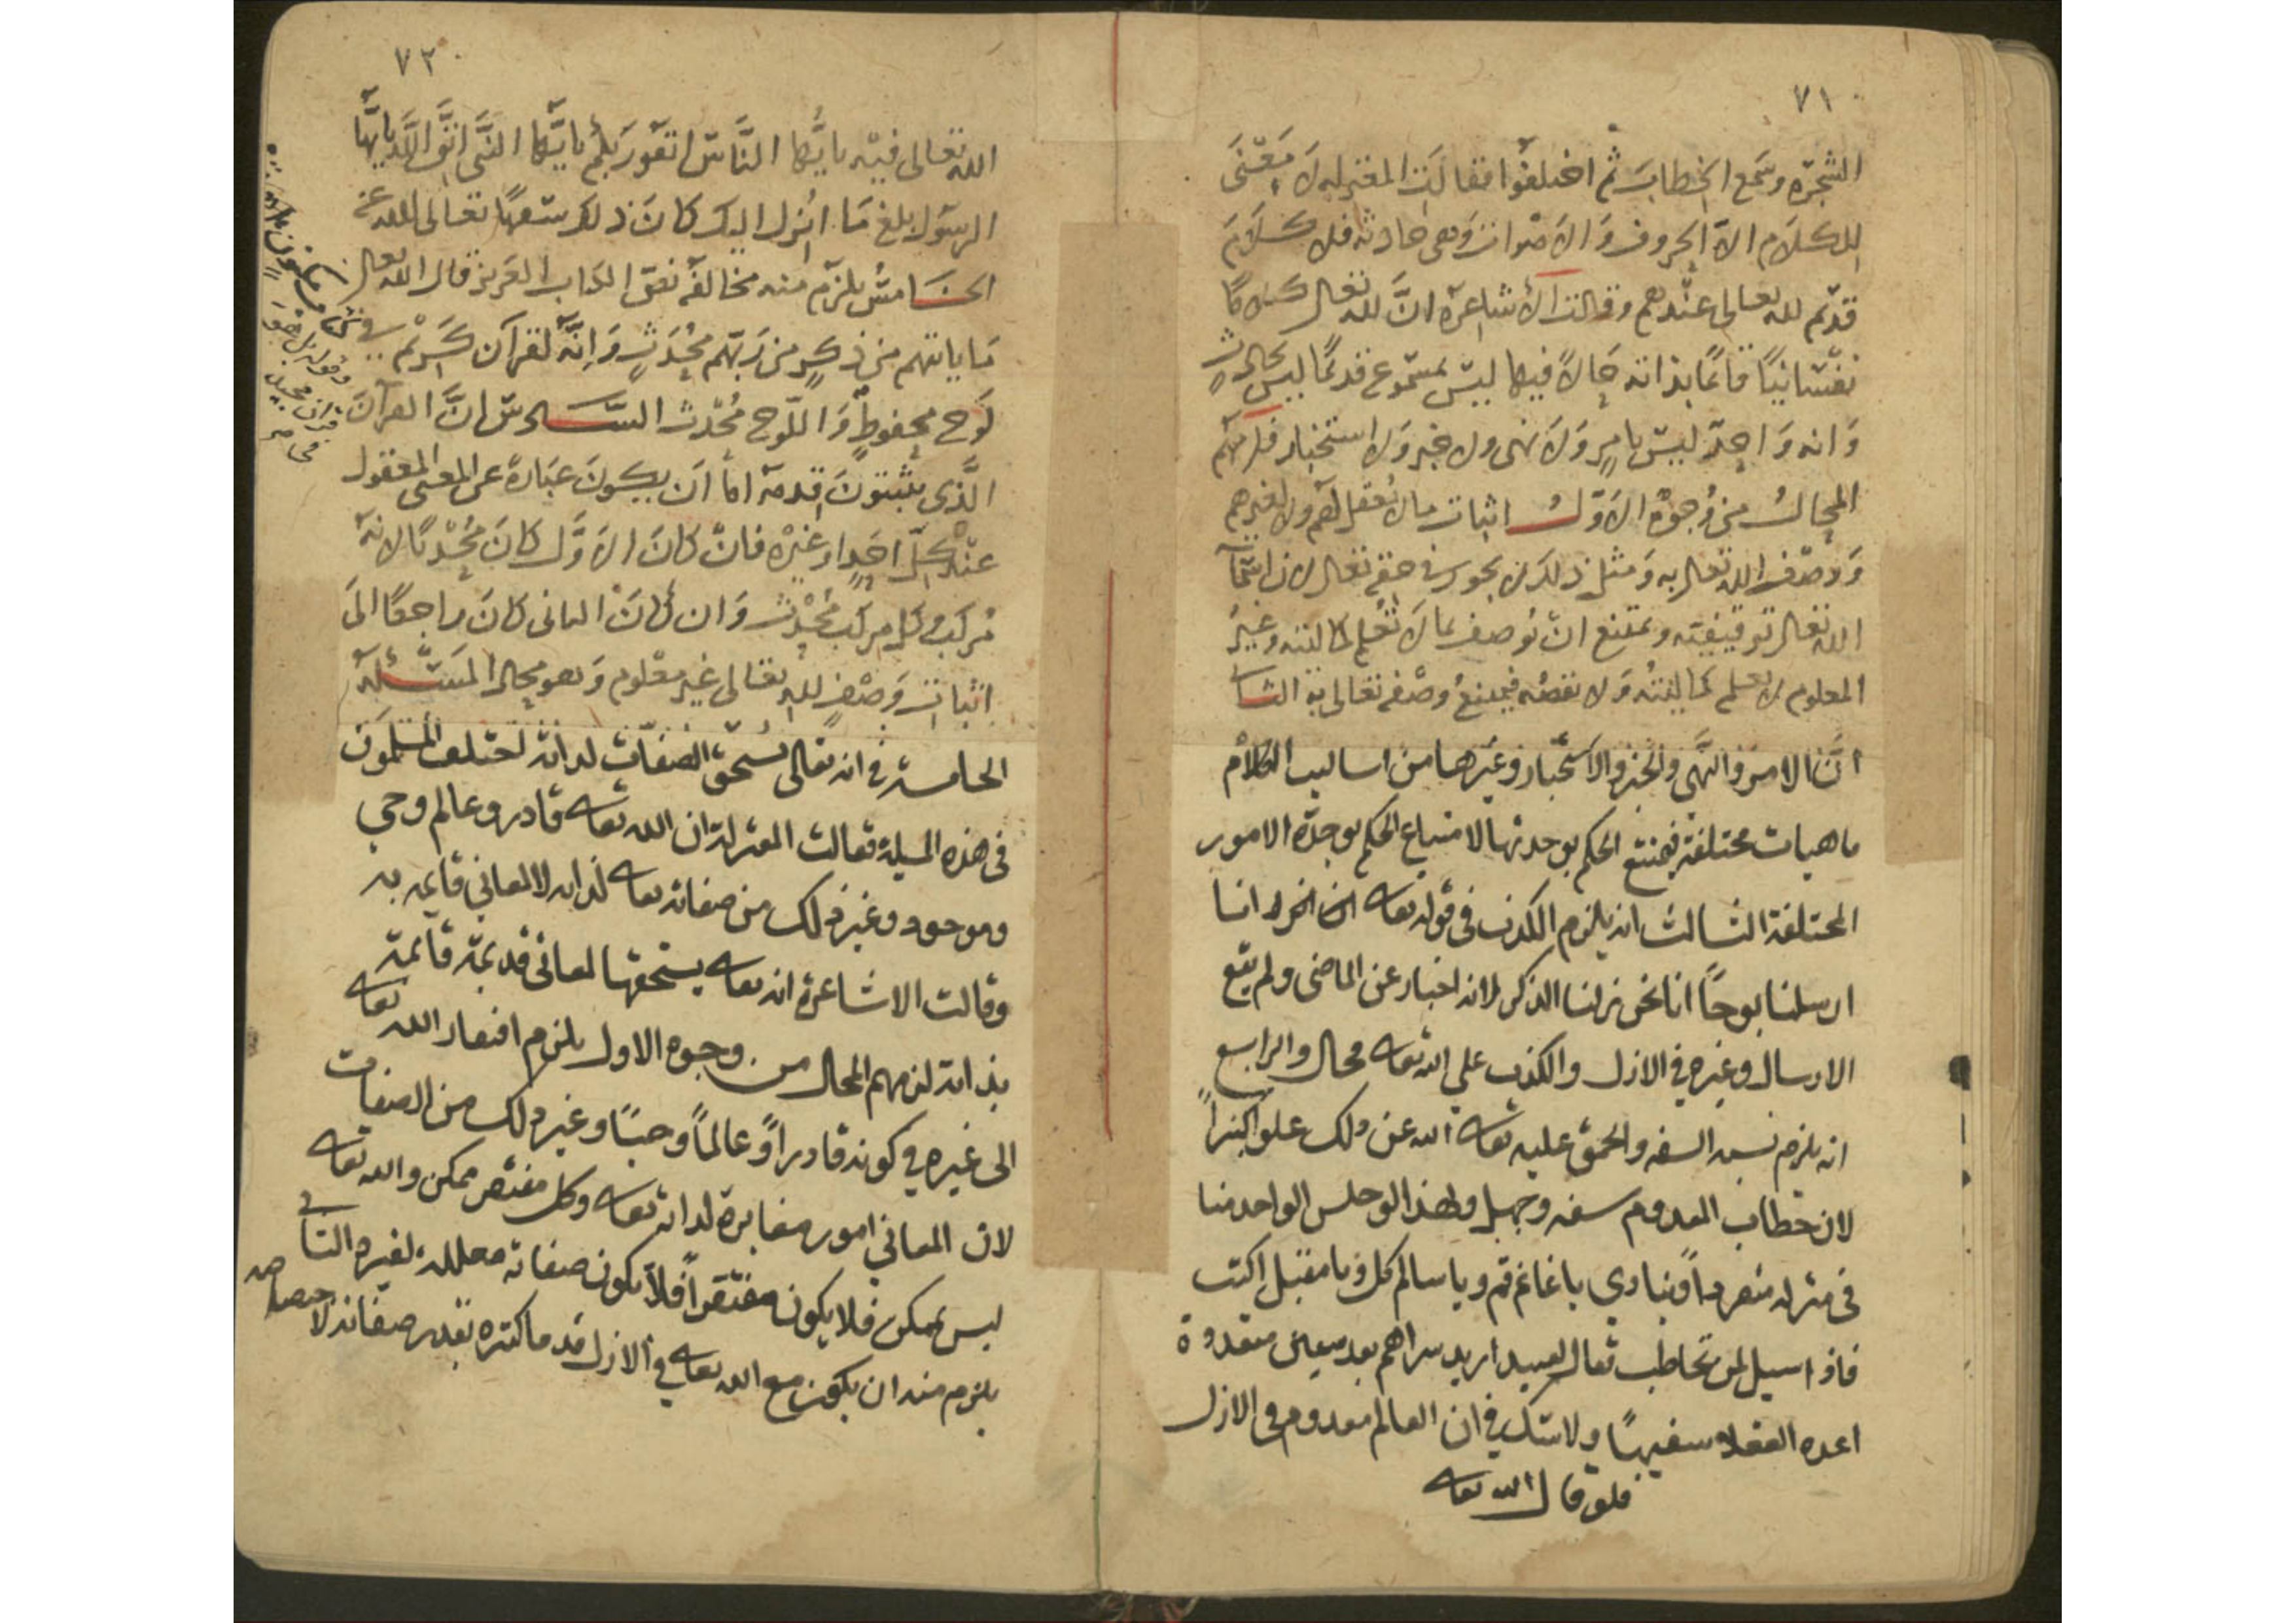 ٧١
الشجرة وسمع الخطاب ثم اختلفوا فقالت المعتزله لا معنى
للكلام الا الحروف والاصوات وهى حادثة فلا كلام
قديم لله تعالى عندهم وقالت الأشاعرة انَّ لله تعالى كلامًا
نفسانيًا قائمًا بذاته حالاً فيها ليس بمسموع قديمًا ليس بحادث
وانه واحد ليس بامر ولا نهى ولا خبر ولا استخبار فلزمهم
المحال من وجوه الاول اثبات مالا يُعقل لهم ولا لغيرهم
ووصف الله تعالى به ومثل ذلك لا يجوز في حقه تعالى لان اسماء
الله تعالى توقيفية ويمتنع ان يُوصف بما لا تُعلم كماليته وغيرُ
المعلوم لا يعلم كماليتُه ولا نقصُه فيمتنعُ وصْفه تعالى به الثانى
انَّ الامر والنهي والخبر والاستخبار وغيرها من اساليب الكلام
ماهيات مختلفة فيمتنع الحكم بوحدتها لامتناع الحكم بوحدة الامور
المختلفة الثالث انه يلزم الكذب فى قوله تعالى انا
ارسلنا نوحًا انا نحن نزلنا الذكر لانه اخبار عن الماضى ولم يقع
الارسال وغيره في الازل والكذب علي الله تعالى محال والرابع
انه يلزم نسبة السفه والحمق عليه تعالى الله عن ذلك علوا كبيراً
لان خطاب المعدوم سفه وجهل ولهذا لو جلس الواحد منا
فى منزله منفرداً وينادي يا غانم قم ويا سالم كل ويا مقبل اكتب
فاذا سيل لمن تخاطب فقال لعبيد اريد شراهم بعد سنين متعددة
اعده العقلاء سفيهًا ولا شك في ان العالم معدوم فى الازل
فلو قال الله تعالى
٧٢
الله تعالى فيه يا يُّها النَّاس اتقو ربكم يا يَّها النَّبى اتق اللَّه يايّها
الرسول بلغ مَا انُزل اليك كانَ ذلك سَفهًا تعالى الله عن
الخامسُ يلزم منه مخالفة نص الكتاب العزيز قال الله تعالى
مَا ياتيهم من ذكرٍ من ربّهم مُحْدَثٍ وَانَّه لقرآن كريم في
لَوح محفوظٍ وَاللّوح مُحْدث السادس انَّ القرآنَ
الَّذى يثبتونَ قِدمه اما ان يكونَ عبَارة عن المعنى المعقول
عنْد كلّ احَدٍ اوغيْره فانْ كانَ الاوَّل كانَ مُحْدثًا لانه
مُركبٌ وكل مركب مُحْدث وَان كانَ الثانى كانَ راجعًا الَى
اثبات وَصْفٍ للهِ تعالى غير معْلوم وَهو محال المَسْئلَة
الخامسة في انه تعالى يستحق الصفات لذاته اختلف المسلمون
فى هذه المسيلة فقالت المعتزلة ان الله تعالى قادر وعالم وحي
وموجود وغير ذلك من صفاته تعالى لذاته لا لمعاني قايمه به
وقالت الاشاعرة انه تعالى يستحقها لمعانى قديمة قائمة
بذاته لزمهم المحال من وجوه الاول يلزم افتقار الله تعالى
الى غيره في كونه قادراً وعالماً وحيًا وغير ذلك من الصفات
لان المعاني امور مغايرة لذاته تعالى وكل مفتقر ممكن والله تعالى
ليس بممكن فلا يكون مفتقراً فلا يكون صفاته معللة لغيره الثانى
يلزم منه ان يكون مع الله تعالى في الازل قدما كثيره بقدر صفاته
وقوله بل هو
قران مجيد